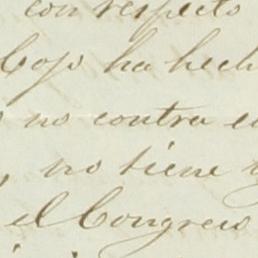 con respecto
Cojo ha hech
no contra e
, no tiene
el Congreso